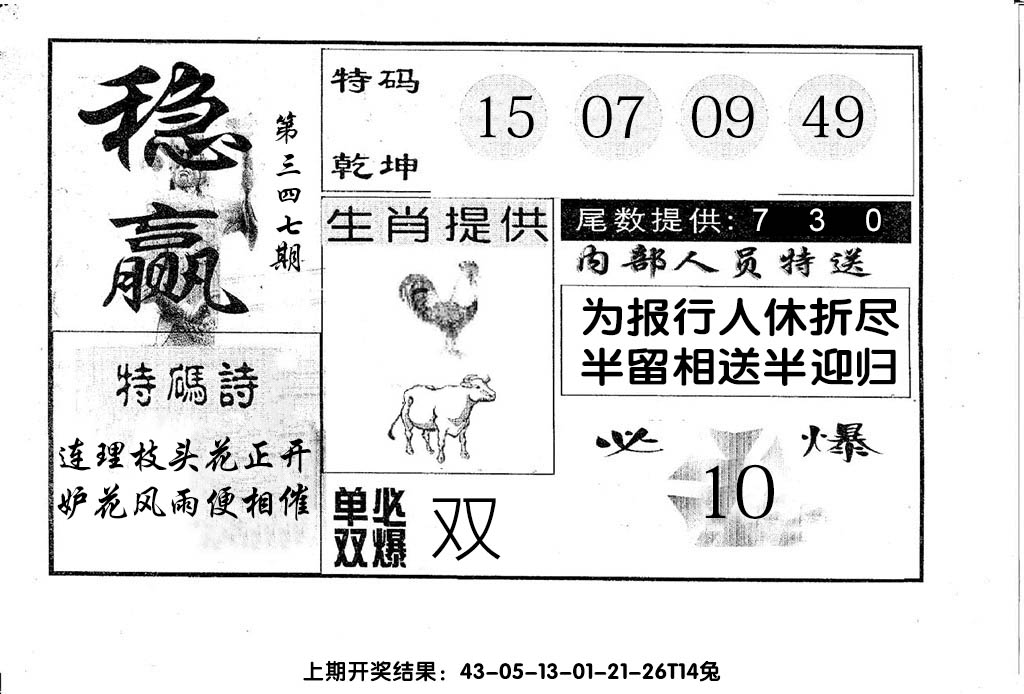 稳赢
第三四七期
特码
乾坤
15 07 09 49
生肖提供
尾数提供: 7 3 0
内部人员特送
为报行人休折尽
半留相送半迎归
特碼詩
连理枝头花正开
妒花风雨便相催
必爆
10
单双
必爆
双
上期开奖结果：43-05-13-01-21-26T14兔